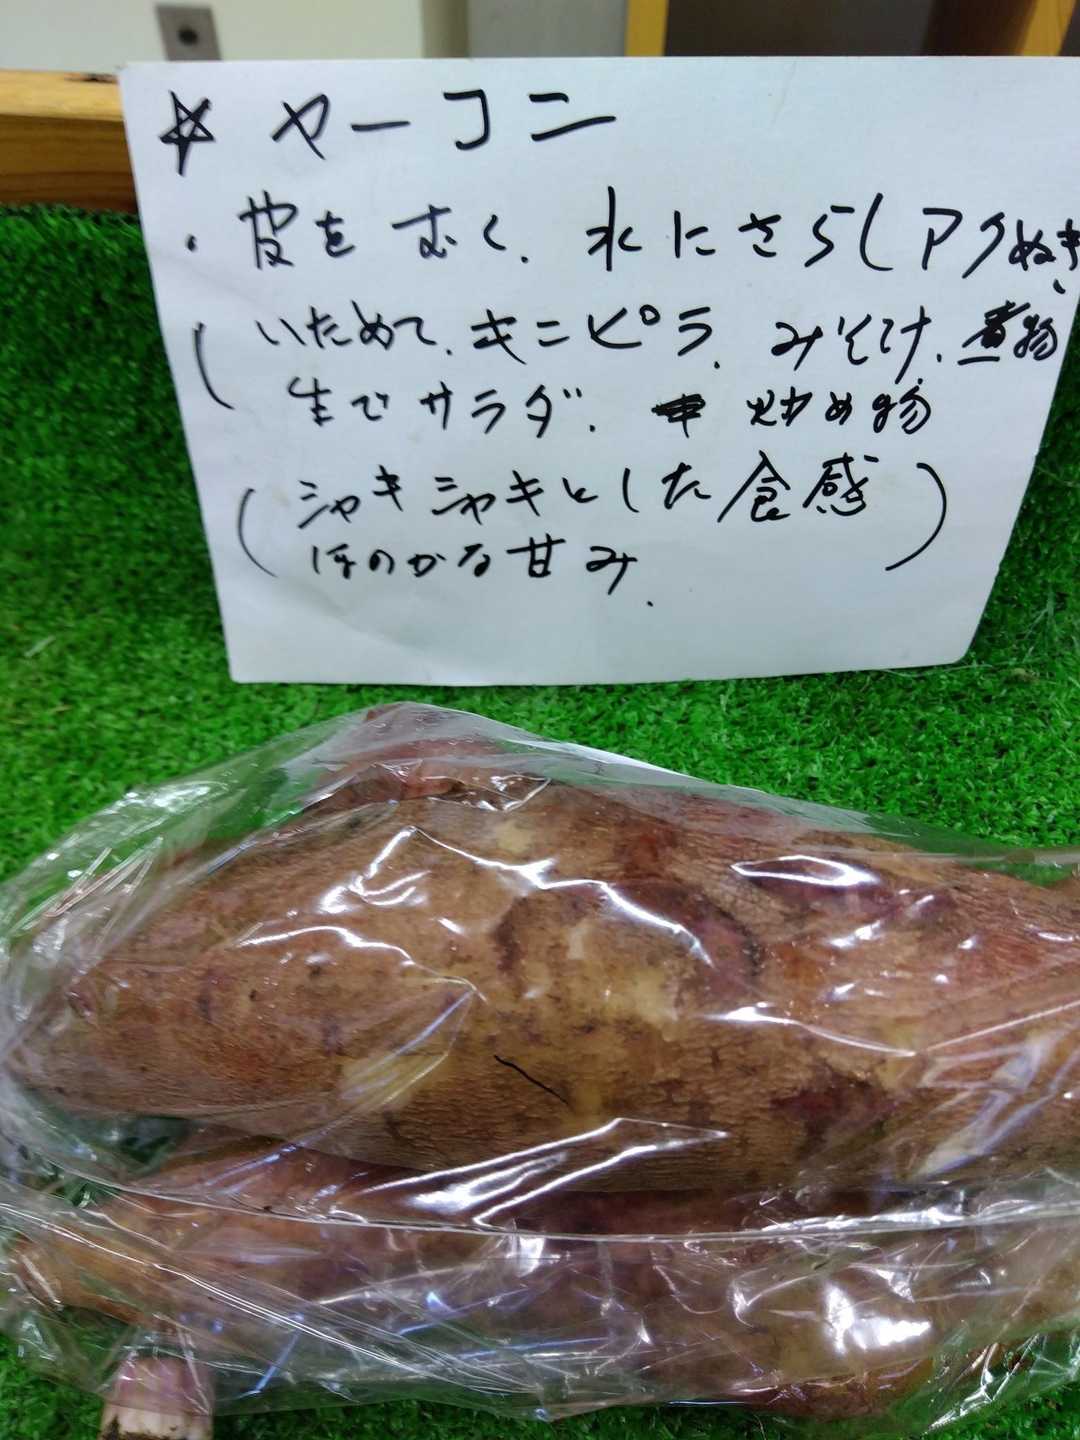 ☆ ヤーコン
・皮をむく. 水にさらしアクぬき、
いためて、キンピラ、みそ汁、煮物
生でサラダ、炒め物
(シャキシャキとした食感
ほのかな甘み.)